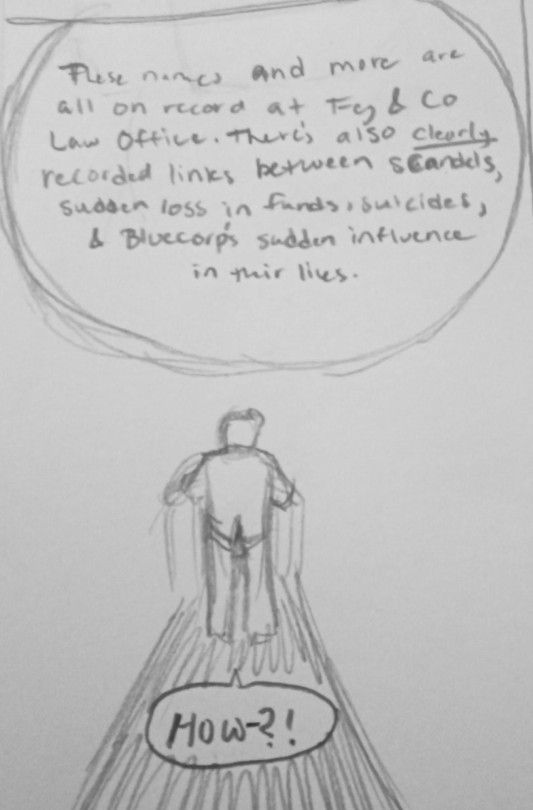 These names and more are
all on record at Fey & Co
Law Office. There's also clearly
recorded links between scandels,
sudden loss in funds, suicides,
& Bluecorp's sudden influence
in their lives.
How-?!